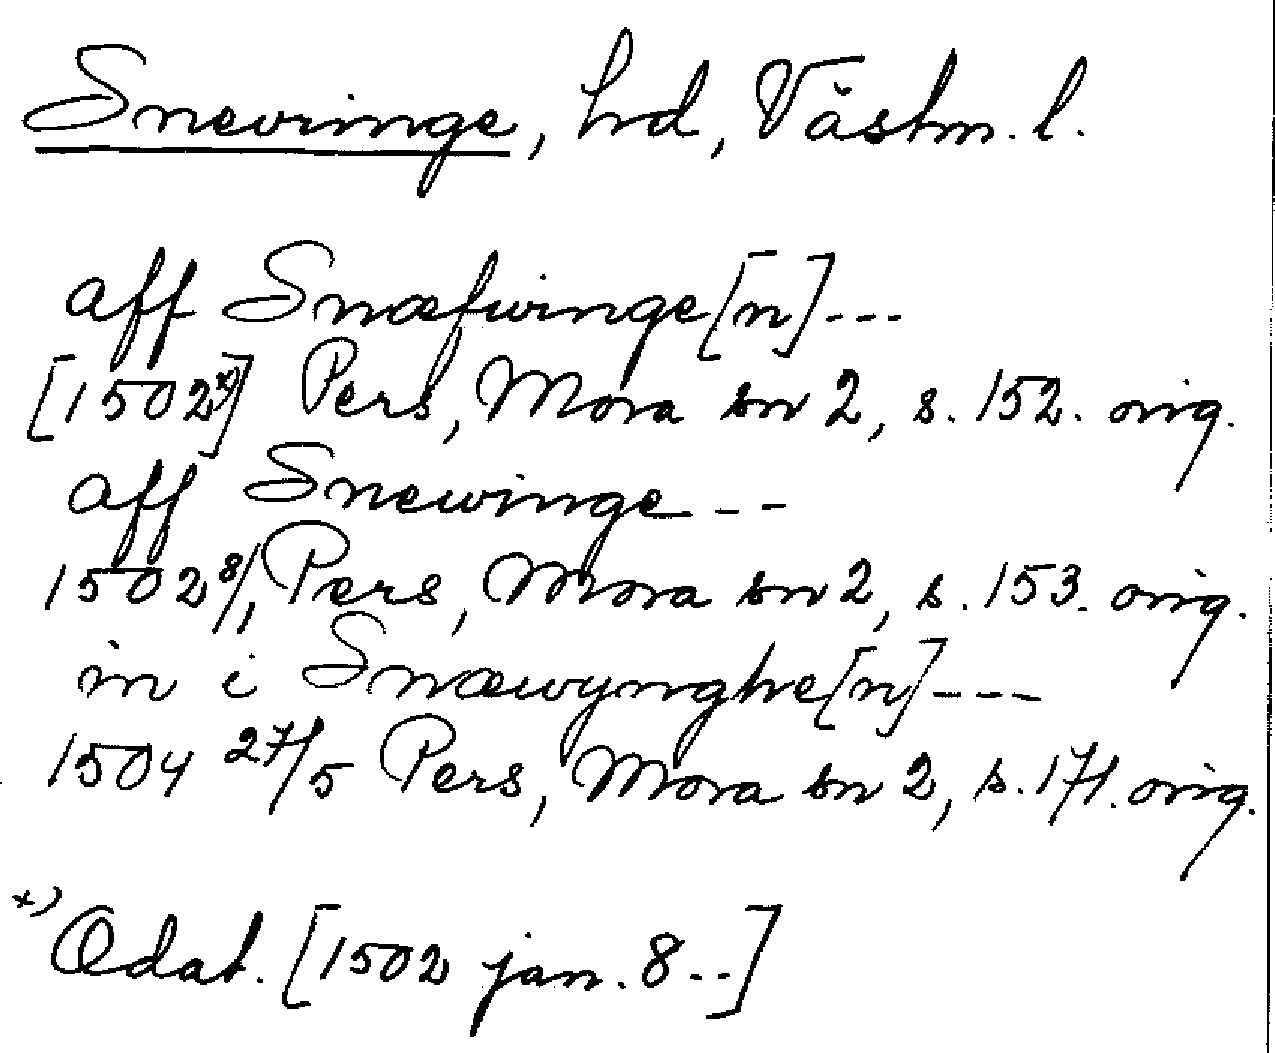 Snevringe, hd, Västm. l.
aff Snæfwinge[n]---
[1502*)] Pers, Mora sn 2, s. 152. orig.
aff Snewinge---
1502 8/1, Pers, Mora sn 2, s. 153. orig.
in i Snæwynghe[n]---
1504 27/5 Pers, Mora sn 2, s. 171. orig.
*) Odat. [1502 jan. 8--]